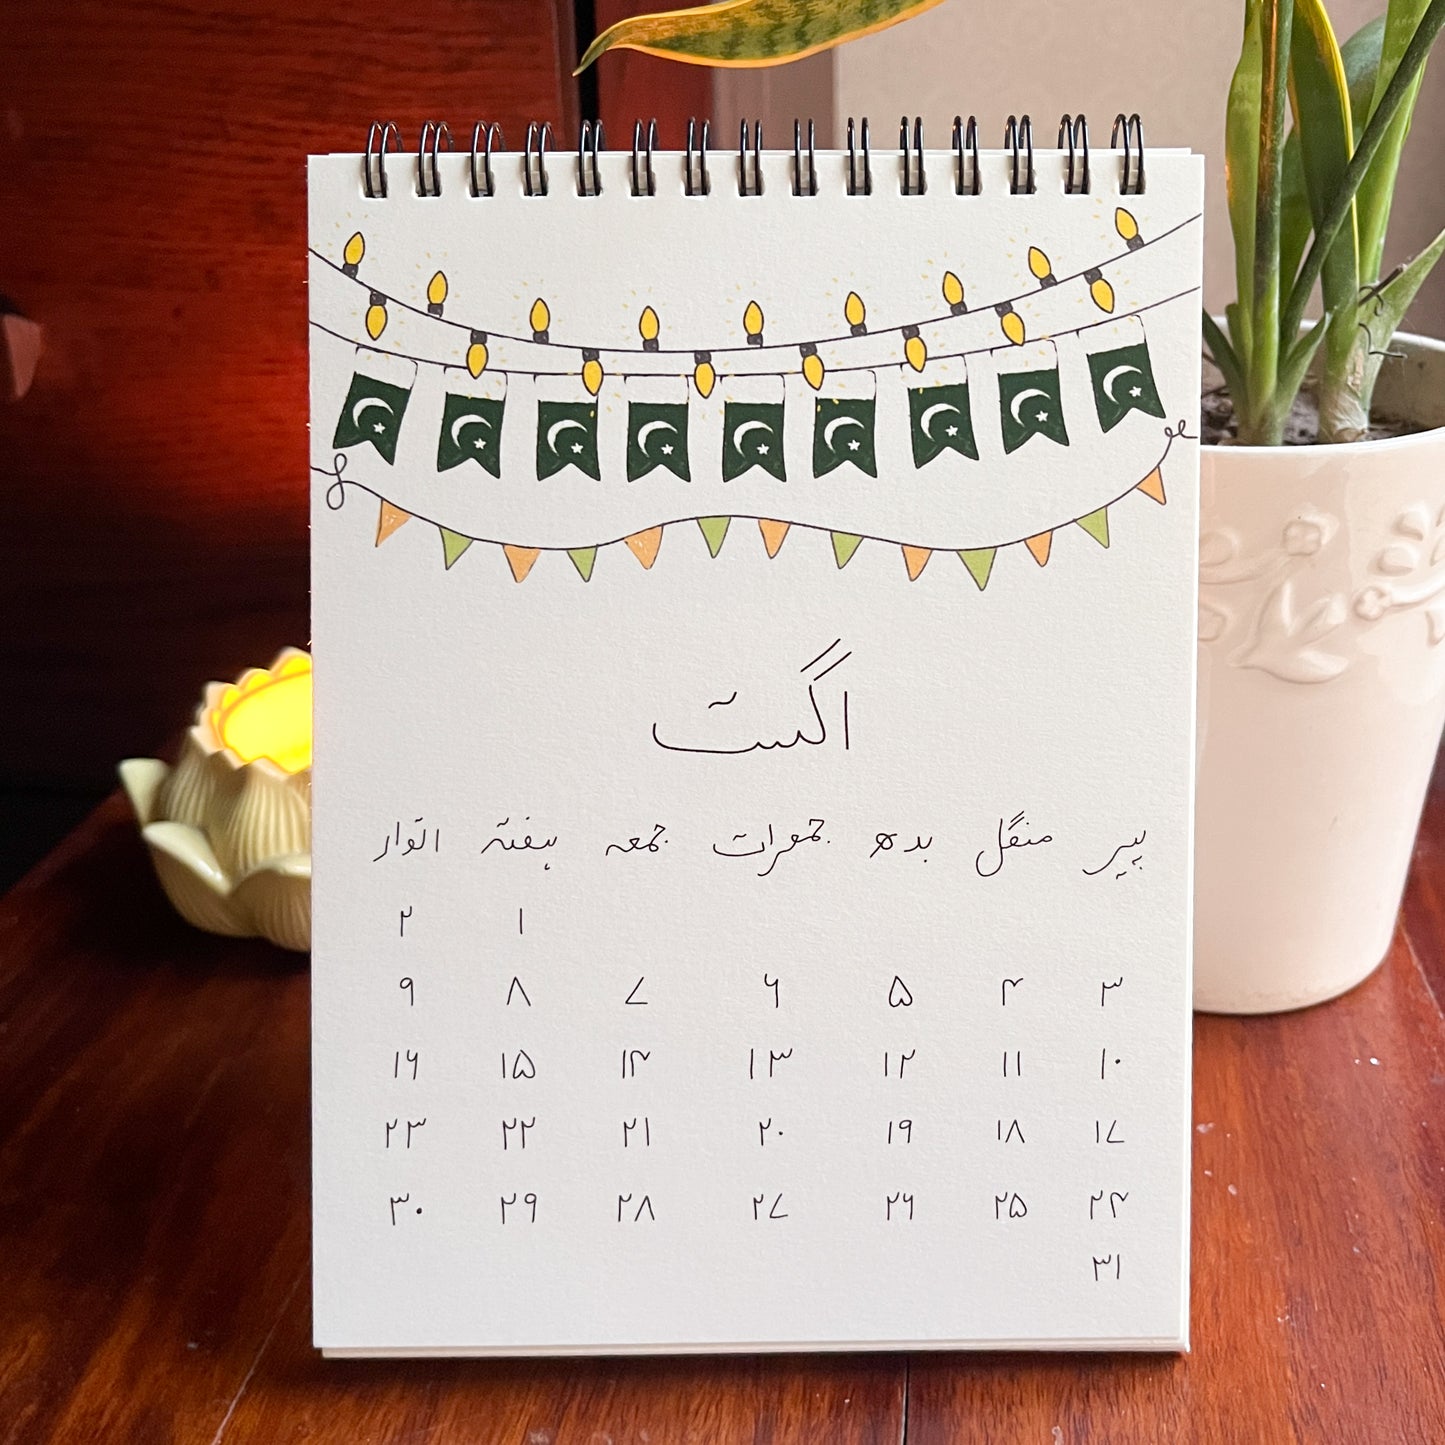 اگست
پیر منگل بدھ جمعرات جمعہ ہفتہ اتوار
۱ ۲
۳ ۴ ۵ ۶ ۷ ۸ ۹
۱۰ ۱۱ ۱۲ ۱۳ ۱۴ ۱۵ ۱۶
۱۷ ۱۸ ۱۹ ۲۰ ۲۱ ۲۲ ۲۳
۲۴ ۲۵ ۲۶ ۲۷ ۲۸ ۲۹ ۳۰
۳۱